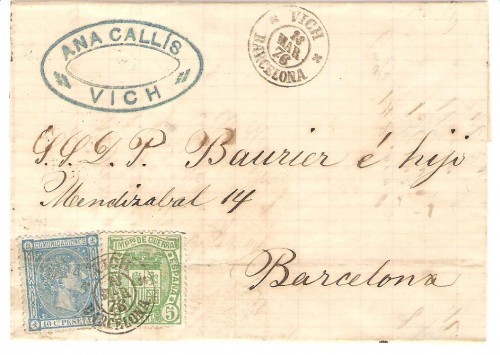 ANA CALLÍS
VICH
VICH
23
MAR
76
BARCELONA
S.S.D. P. Baurier é hijo
Mendizabal 14
Barcelona
COMUNICACIONES
10 Cs PESETA
IMPTO DE GUERRA
ESPAÑA
5
BARCELONA